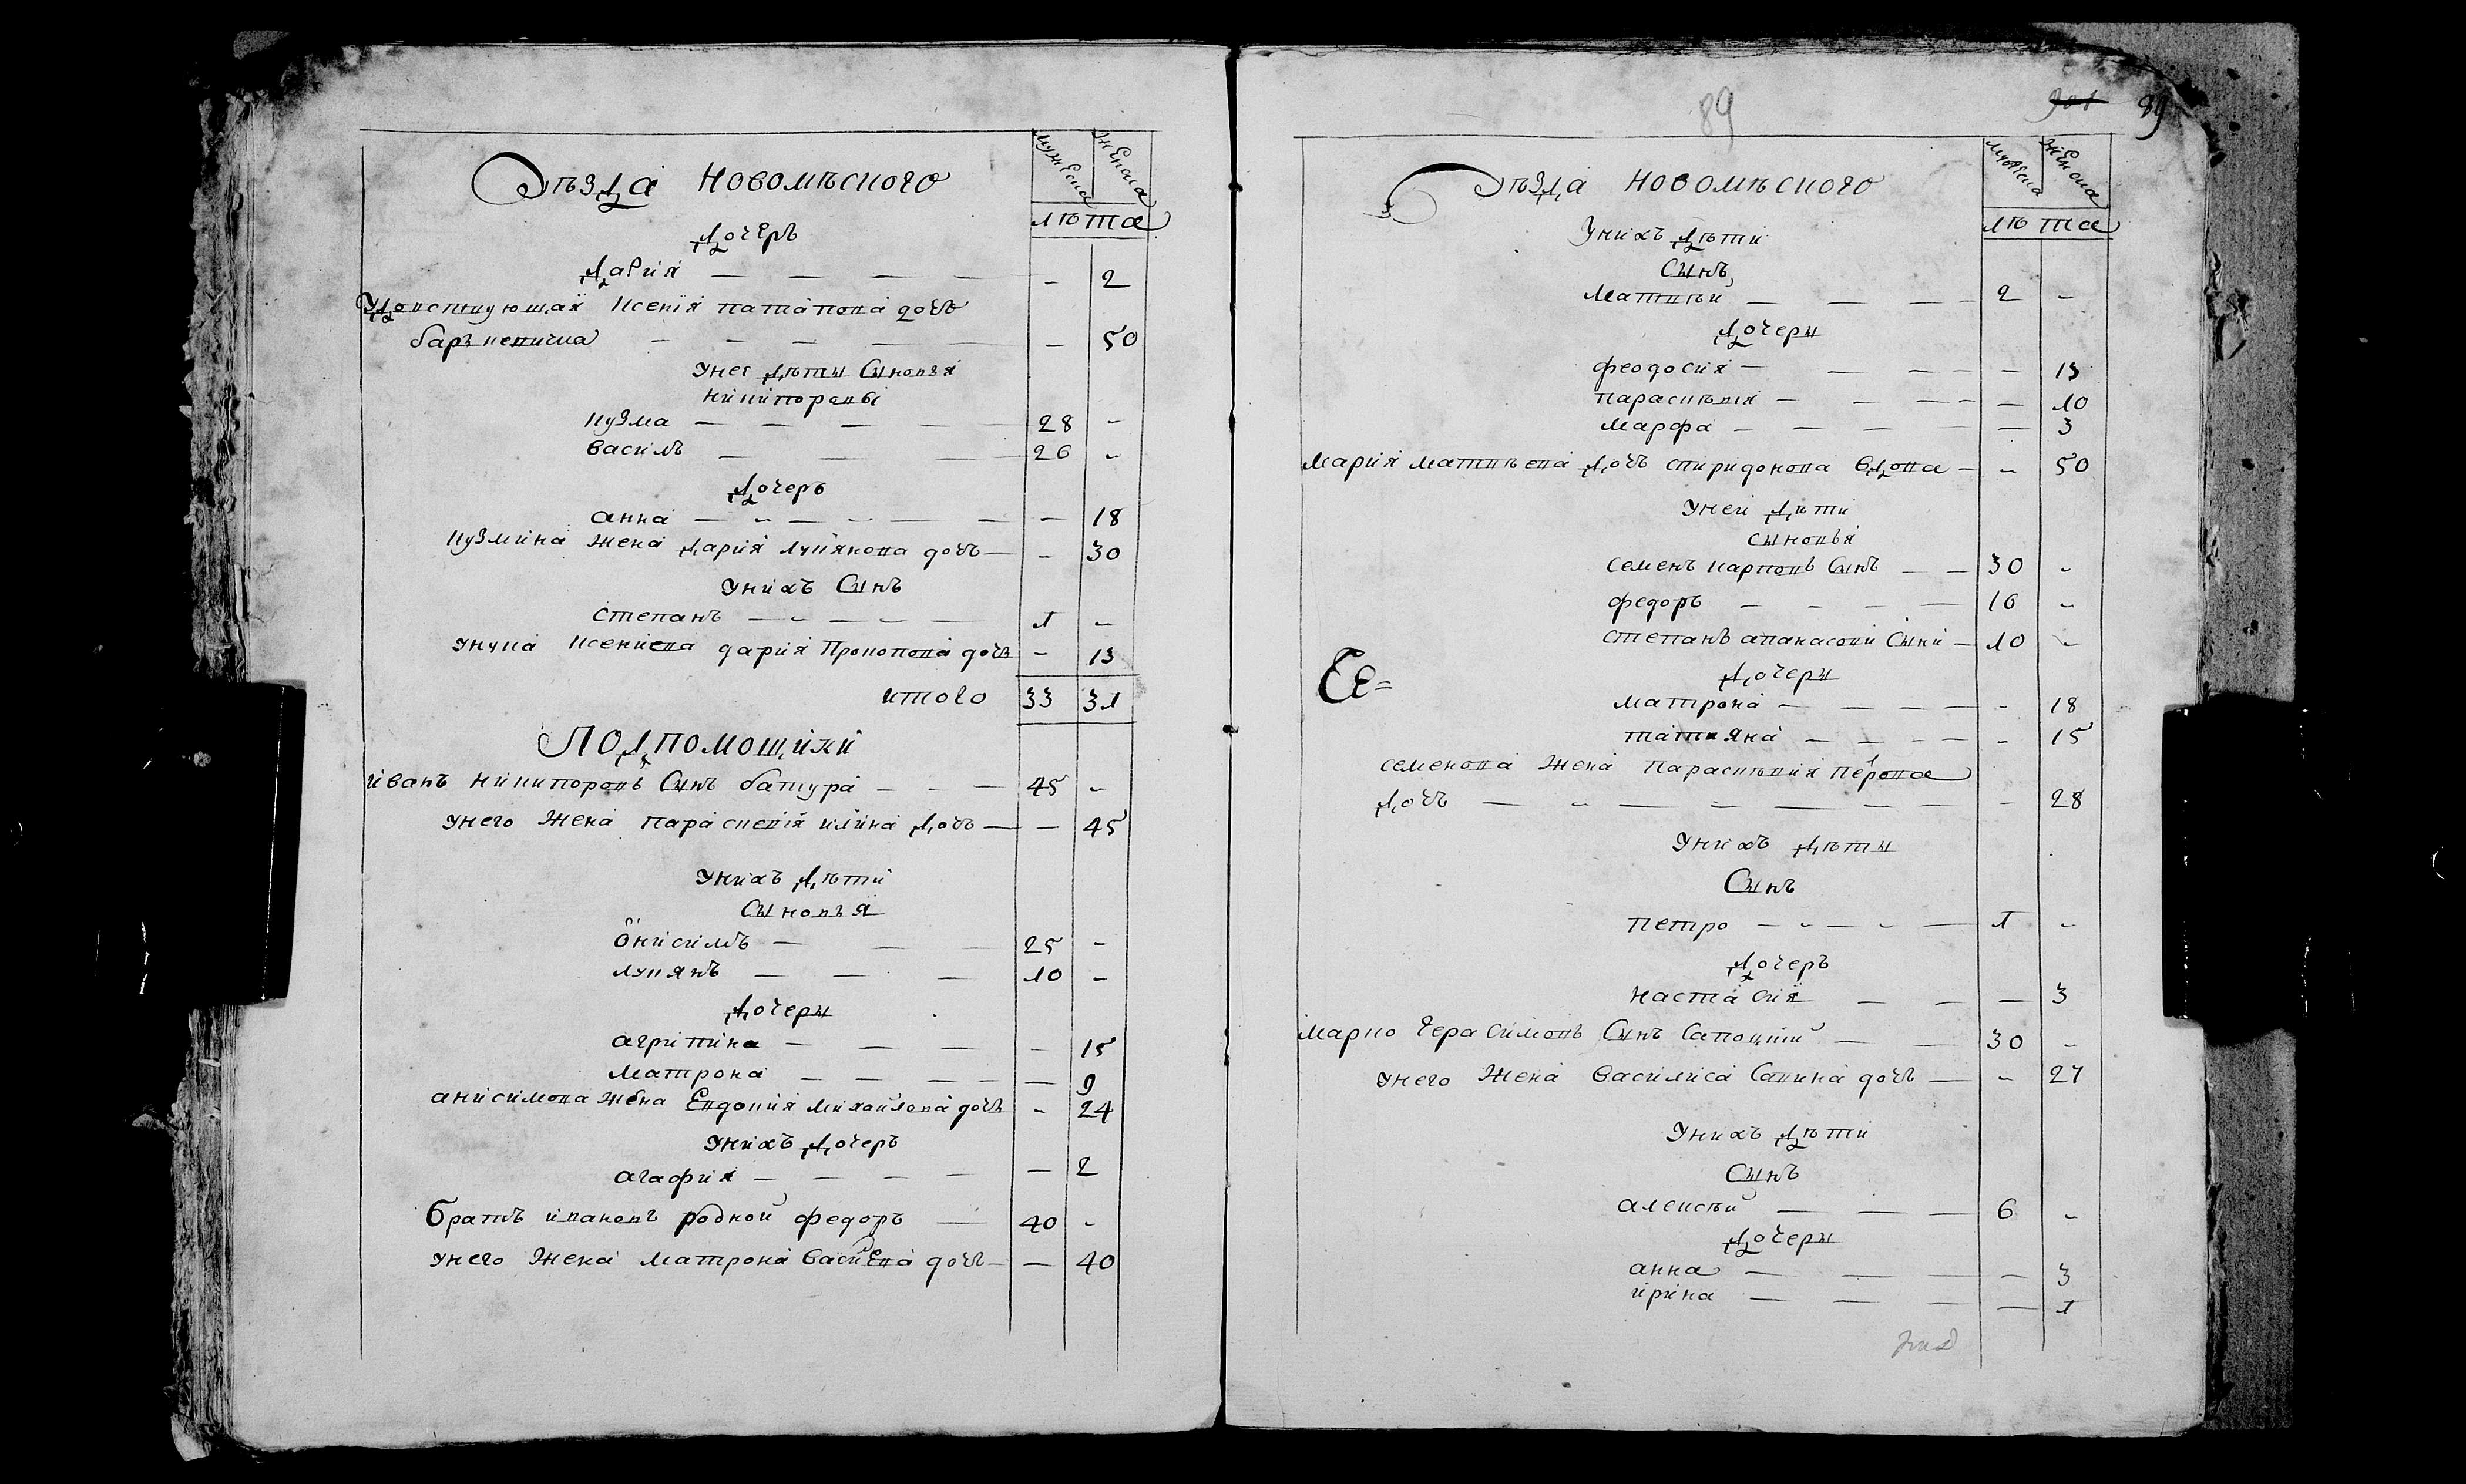 мужеска женска
Уѣзда Новомѣского
лѣта
Дочеръ
Дария — — — — — 2
Вдовствующая Ксенїя патапова дочь
— — — — — 50
Унее дѣты Сыновъя
никифоровы
кузма — — — — 28 -
василь — — — 26 -
Дочеръ
анна — — — — — 18
кузмина жена дария лукянова дочь — - 30
Унихъ Сынъ
Степанъ — — — 1 -
Унука ксениева дария Прокопова дочь - 13
итого 33 31
ПОДПОМОЩИКИ
иванъ никифоровъ Сынъ батура — - — 45 -
Унего Жена параскевїя илїина дочь — — 45
Унихъ дѣти
Сыновъя
Онисимъ — — — 25 -
лукянъ — — — 10 -
Дочеры
агрипина — — — — 15
Матрона — — — — — 9
анисимова жена Евдокия михайлова дочь - 24
Унихъ дочеръ
агафия — — — — — 2
братъ ивановъ родной федоръ — 40 -
унего Жена матрона василева дочь — — 40
89
901 89
мужеска женска
Уѣзда Новомѣского
лѣта
Унихъ дѣти
Сынъ
Матвѣй — — — 2 -
Дочеры
феодосия — — — — — 13
параскѣвия — — — — 10
марфа — — — — — 3
Мария матвѣева дочь спиридонова вдова — - 50
Уней дѣти
сыновья
семенъ карповъ Сынъ — — 30 -
федоръ — — — — 16 -
степанъ апанасови Сыни — 10 -
Ее=
Дочеры
матрона — — — — - 18
татияна — — — — - 15
семенова Жена параскѣвия петрова
дочь — — — — — - 28
Унихъ дѣты
Сынъ
петро — — — 1 -
Дочеръ
настасия — — — 3
марко герасимовъ Сынъ Сапоцкий — — 30 -
Унего Жена василиса Савина дочь — - 27
Унихъ дѣти
Сынъ
алексѣй — — — 6 -
Дочеры
анна — — — — 3
ирина — — — — 1